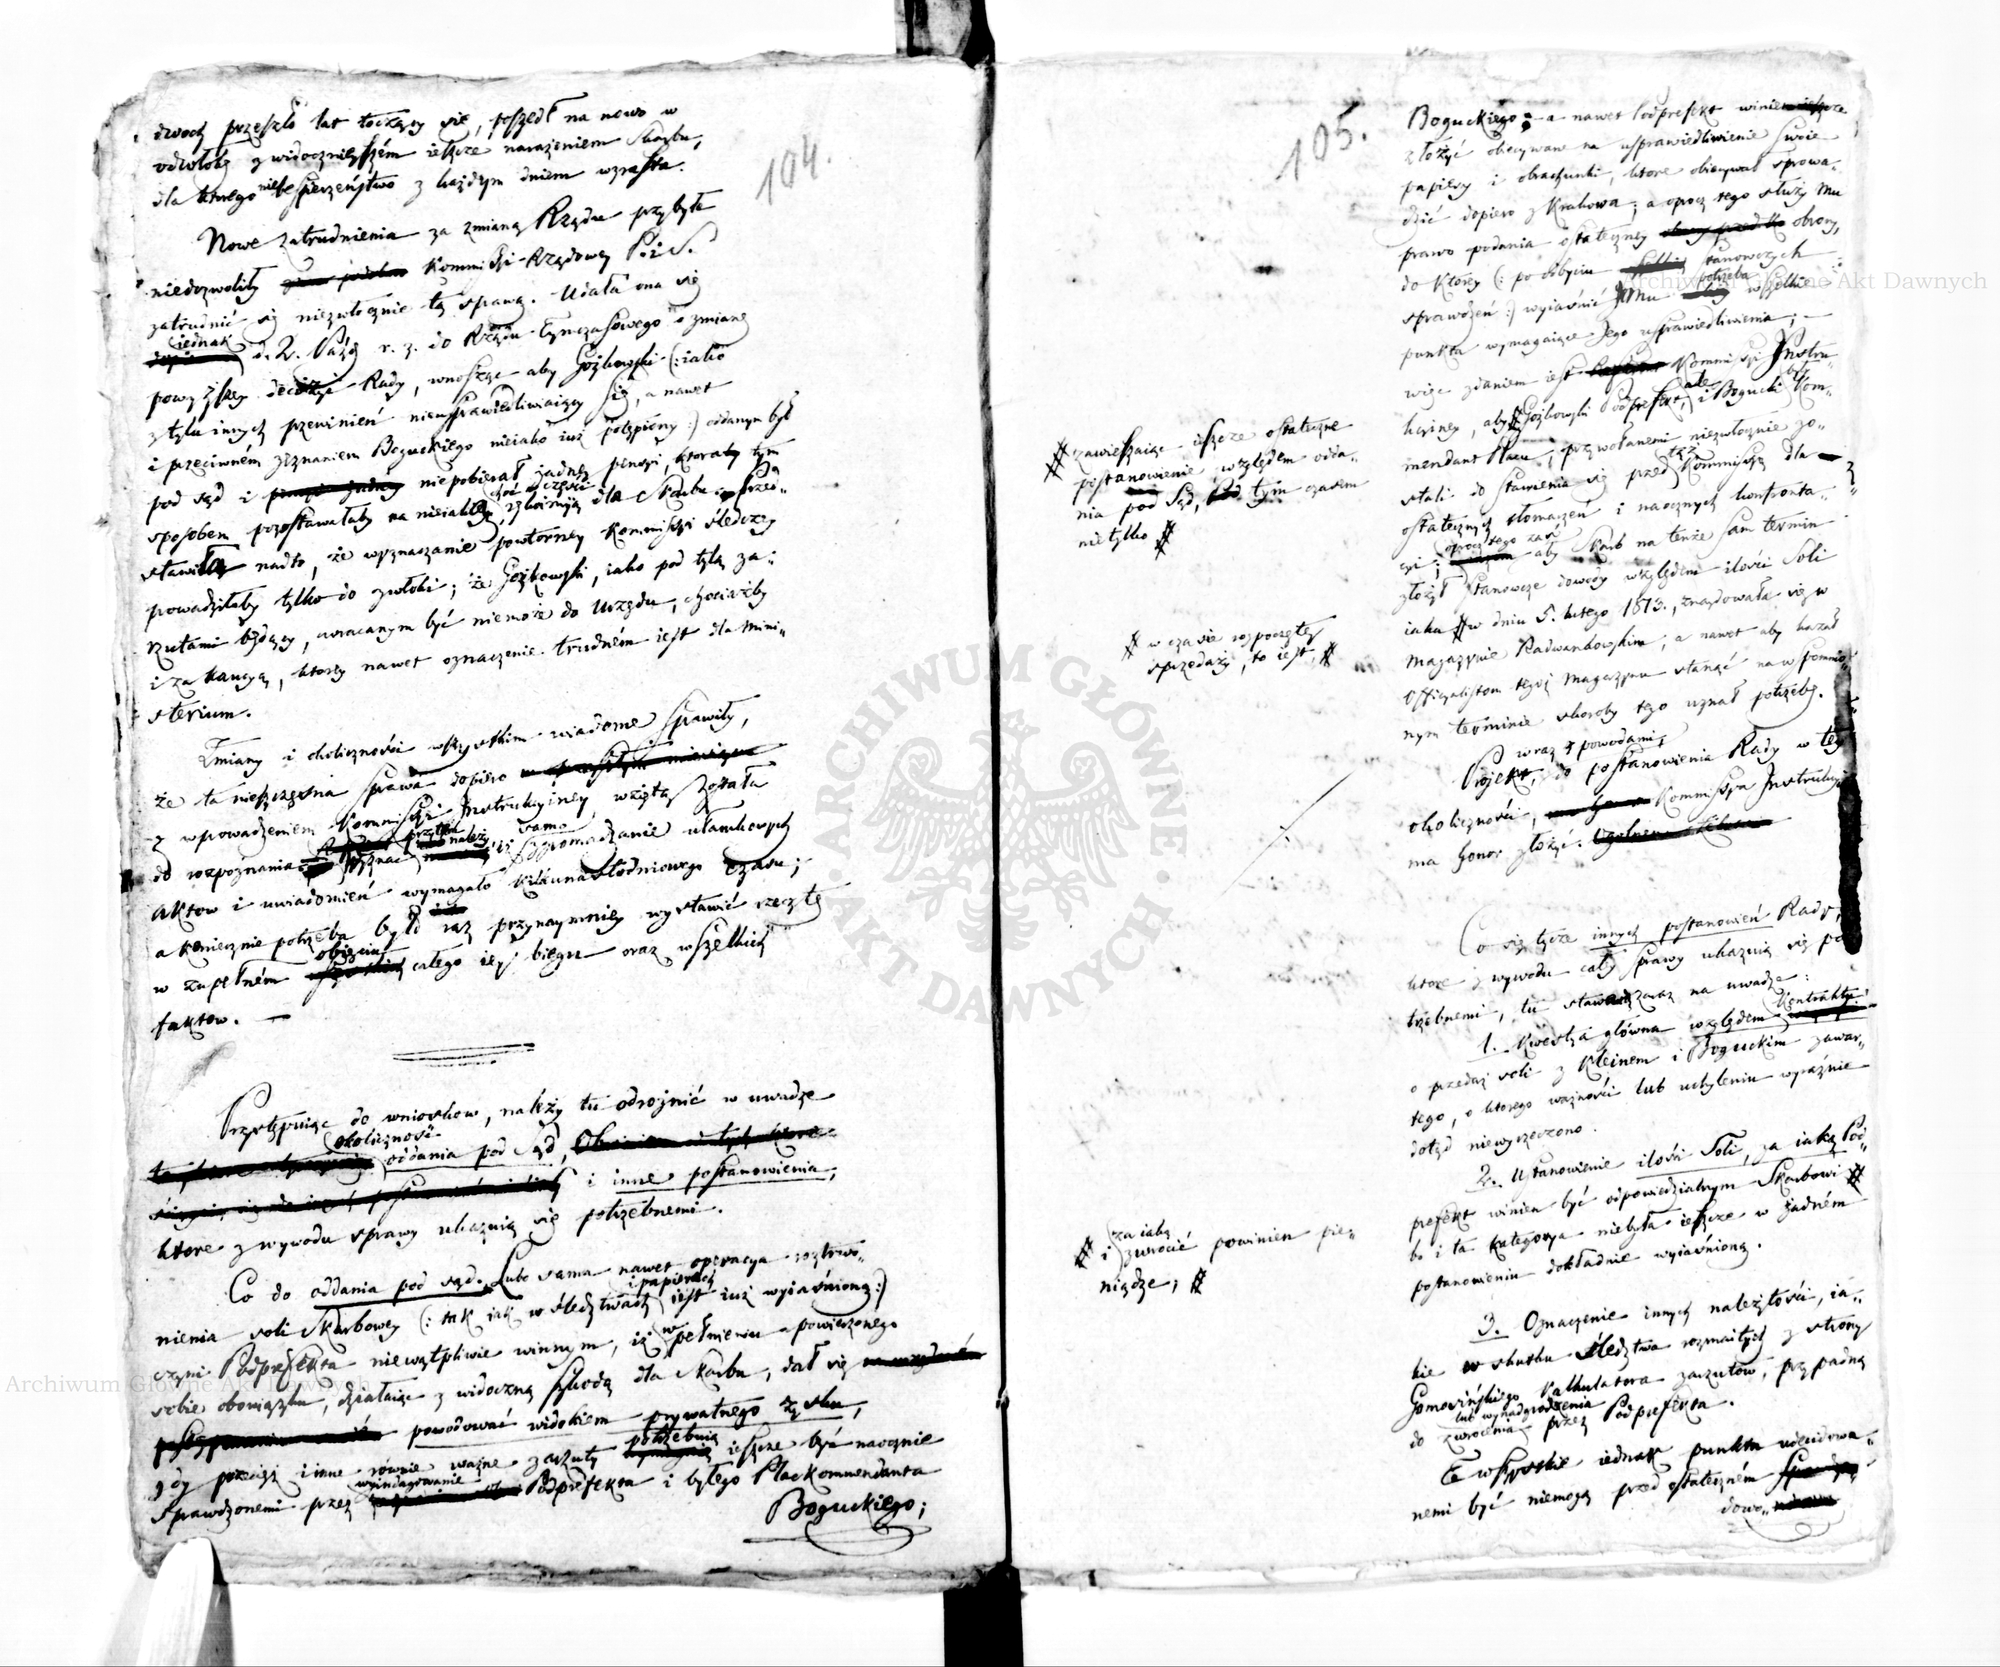 104.
dwóch przeszło lat toczący się, poszedł na nowo w
odwłokę z widocznieyszém ieszcze narażeniem Skarbu,
dla ktorego niebespieczeństwo z każdym dniem wzrasta.
Nowe zatrudnienia za zmianą Rządu przybyłe
niedozwoliły Kommissyi Rządowey P. i S.
zatrudnić się niezwłocznie tą sprawą. Udała ona się
iednak d. 2. Paźd. r. z. do Rządu Tymczasowego o zmianę
powyższey decizyi Rady, wnosząc aby Gożkowski (: iako
z tylu innych przewinień nieusprawiedliwiaiący się, a nawet
i przeciwném zeznaniem Boguckiego nieiako iuż potępiony :) oddanym był
pod sąd i niepobierał żadney pensyi, ktoraby tym
sposobem pozostawałaby na nieiakiey choć części dla Skarbu. Przed-
stawiła nadto, że wyznaczanie powtorney Kommissyi śledczey
powadziłaby tylko do zwłoki; że Gożkowski, iako pod tylą za-
rzutami będący, wracanym być niemoże do Urzędu, chociażby
i za kaucyą, ktorey nawet oznaczenie trudném iest dla Mini-
sterium.
Zmiany i okoliczności wszystkim wiadome sprawiły,
że ta nieszczęsna sprawa dopiero
z wprowadzeniem Kommissyi Instrukcyiney, wzięta została
do rozpoznania przytém wyznać należy, iż samo zgromadzanie ułamkowych
aktow i uwiadomień wymagało kilkunastodniowego czasu;
a koniecznie potrzeba było raz przynaymniey wystawić rzecz tę
w zupełném obięciu całego iey biegu oraz wszelkich
faktow. —
Przystępuiąc do wniosków, należy tu odrożnić w uwadze
okoliczność oddania pod Sąd,
i inne postanowienia,
ktore z wywodu sprawy ukazuią się potrzebnemi.
Co do oddania pod sąd. Lubo sama nawet operacya roztrwo-
nienia soli Skarbowey (: tak iak w śledztwach i papierach iest iuż wyiaśnioną :)
czyni Podprefekta niewątpliwie winnym, iż w pełnieniu powierzonego
sobie obowiązku, działaiąc z widoczną szkodą dla Skarbu, dał się
powodować widokiem prywatnego zysku,
gdy przecież i inne równie ważne zarzuty potrzebuią ieszcze być naocznie
sprawdzonemi przez Podprefekta i byłego Plackommendanta
Boguckiego;
105.
Boguckiego; a nawet Podprefekt winien ieszcze
złożyć obecywane na usprawiedliwienie swoie
papiery i obrachunki, ktore obiecywał sprowa-
dzić dopiero z Krakowa; a oprocz tego służy mu
prawo podania ostateczney obrony,
do ktorey (: po odbyciu stanowczych
sprawdzeń :) wyiaśnić Jemu potrzeba wszelkie
punkta wymagaiące Jego usprawiedliwienia; —
więc zdaniem iest Kommissyi Instru-
kcyiney, aby # Gożkowski Podprefekt, i Bogucki były Kom-
mendant Placu, przywołanemi niezwłocznie zo-
stali do stawienia się przed też Kommissyą dla
ostatecznych tłomaczeń i naocznych konfronta-
cyi; oprocz tego zaś aby Skarb na tenże sam termin
złożył stanowcze dowody względem ilości Soli
iaka # w dniu 5. lutego 1813., znaydowała się w
magazynie Radwankowskim; a nawet aby kazał
Officyalistom tegoż magazynu stanąć na wspomnio-
nym terminie skoroby tego uznał potrzebę.
# zawieszaiąc ieszcze ostateczne
postanowienie względem odda-
nia pod Sąd, tym czasem
nietylko #
# w czasie rozpoczętey
sprzedaży, to iest, #
Projekt, wraz z powodami, do postanowienia Rady w tey
okoliczności, Kommissya Instrukcyi
ma honor złożyć.
Co się tycze innych postanowień Rady,
ktore z wywodu całey sprawy ukazuią się po-
trzebnemi, tu stawam zaraz na uwadze:
1. Kwestya główna względem kontraktu
o przedaż soli z Kleinem i Boguckim zawar-
tego, o ktorego ważności lub uchyleniu wyraźnie
dotąd niewyrzeczono.
2. Ustanowienie ilości Soli, za iaką Pod-
prefekt winien być odpowiedzialnym Skarbowi #
bo i ta kategorya niebyła ieszcze w żadném
postanowieniu dokładnie wyiaśnioną.
# i za iaką zwrocić powinien pie-
niądze; #
3. Oznaczenie innych należytości, ia-
kie w skutku śledztwa rozmaitych z strony
Gomowińskiego Kalkulatora zarzutow, przypadną
do zwrocenia lub wynadgrodzenia przez Podprefekta.
Te wszystkie iednak punkta udecidowa-
nemi być niemogą przed ostateczném
dowo-